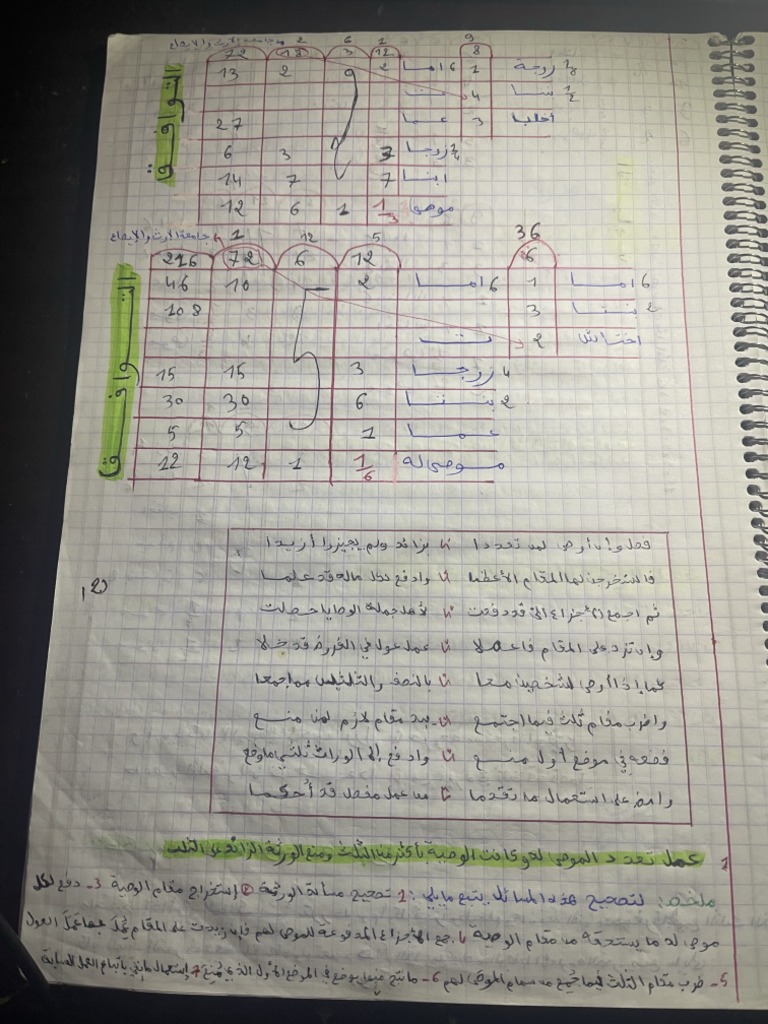 2 6 1 9
72 18 3 12 8
13 2 9 2 6 امـا 1 زوجة 1/8
ت 4 بنتـا 1/2
27 عمـا 3
6 3 3 زوجـا 1/4
14 7 7 ابنـا
12 6 1 1/3 موصى
التوافق
جامعة الارث والإيصاء
1 12 5 36
216 72 6 12 6
46 10 2 6 امـا 1 6 امـا
108 3 2 بنتـا
ت 2
15 15 3 4 زوجـا
30 30 6 2 بنتـا
5 5 1 عمـا
12 12 1 1/6 موصى له
التوافق
فصل وإن أوصى لمن تعددا بزائد ولم يجيزوا أزيدا
فاستخرجن لها المقام الأعظما وادفع لكل ماله قد علما
ثم اجمع الأجزاء التي قد دفعت لأهل جملة الوصايا حصلت
وإن تزد على المقام فاعملا عمل عول في الفروض قد خلا
كما إذا أوصى لشخصين معا بالنصف والثلثين مما جمعا
واضرب مقام ثلث فيما اجتمع بيد مقام لازم لمن منع
فضعه في موضع أول منع وادفع إلى الوراث ثلثي ما وقع
وامض على استعمال ما تقدما من عمل مفصل قد أحكما
عمل تعدد الموصى لهم وكانت الوصية بأكثر من الثلث ومنع الورثة الزائد على الثلث
ملخص: لتصحيح هذه المسائل يتبع ما يلي: 1 تصحيح مسألة الورثة 2 إستخراج مقام الوصية 3- دفع لكل
موصى له ما يستحقه من مقام الوصية جمع الأجزاء المدفوعة للموصى لهم فإن زادت على المقام عمل العول
5- ضرب مقام الثلث فيما جمع من سهام الموصى لهم 6- ما نتج منهما يوضع في الموضع الأول الذي منع 7 إستعمال باتباع العمل السابق